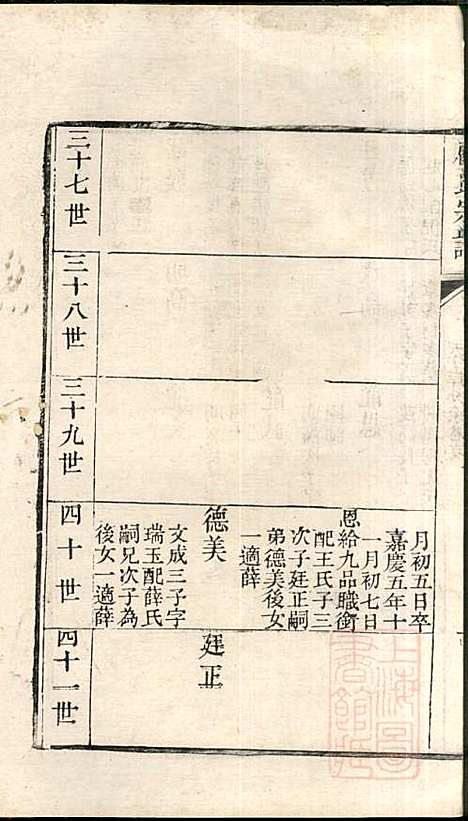 三十七世
三十八世
三十九世
四十世
月初五日卒
嘉慶五年十
一月初七日
恩給九品職銜
配王氏子三
次子廷正嗣
弟德美後女
一適薛
德美
文成三子字
瑞玉配薛氏
嗣兄次子為
後女一適薛
四十一世
廷正
上海圖書館藏